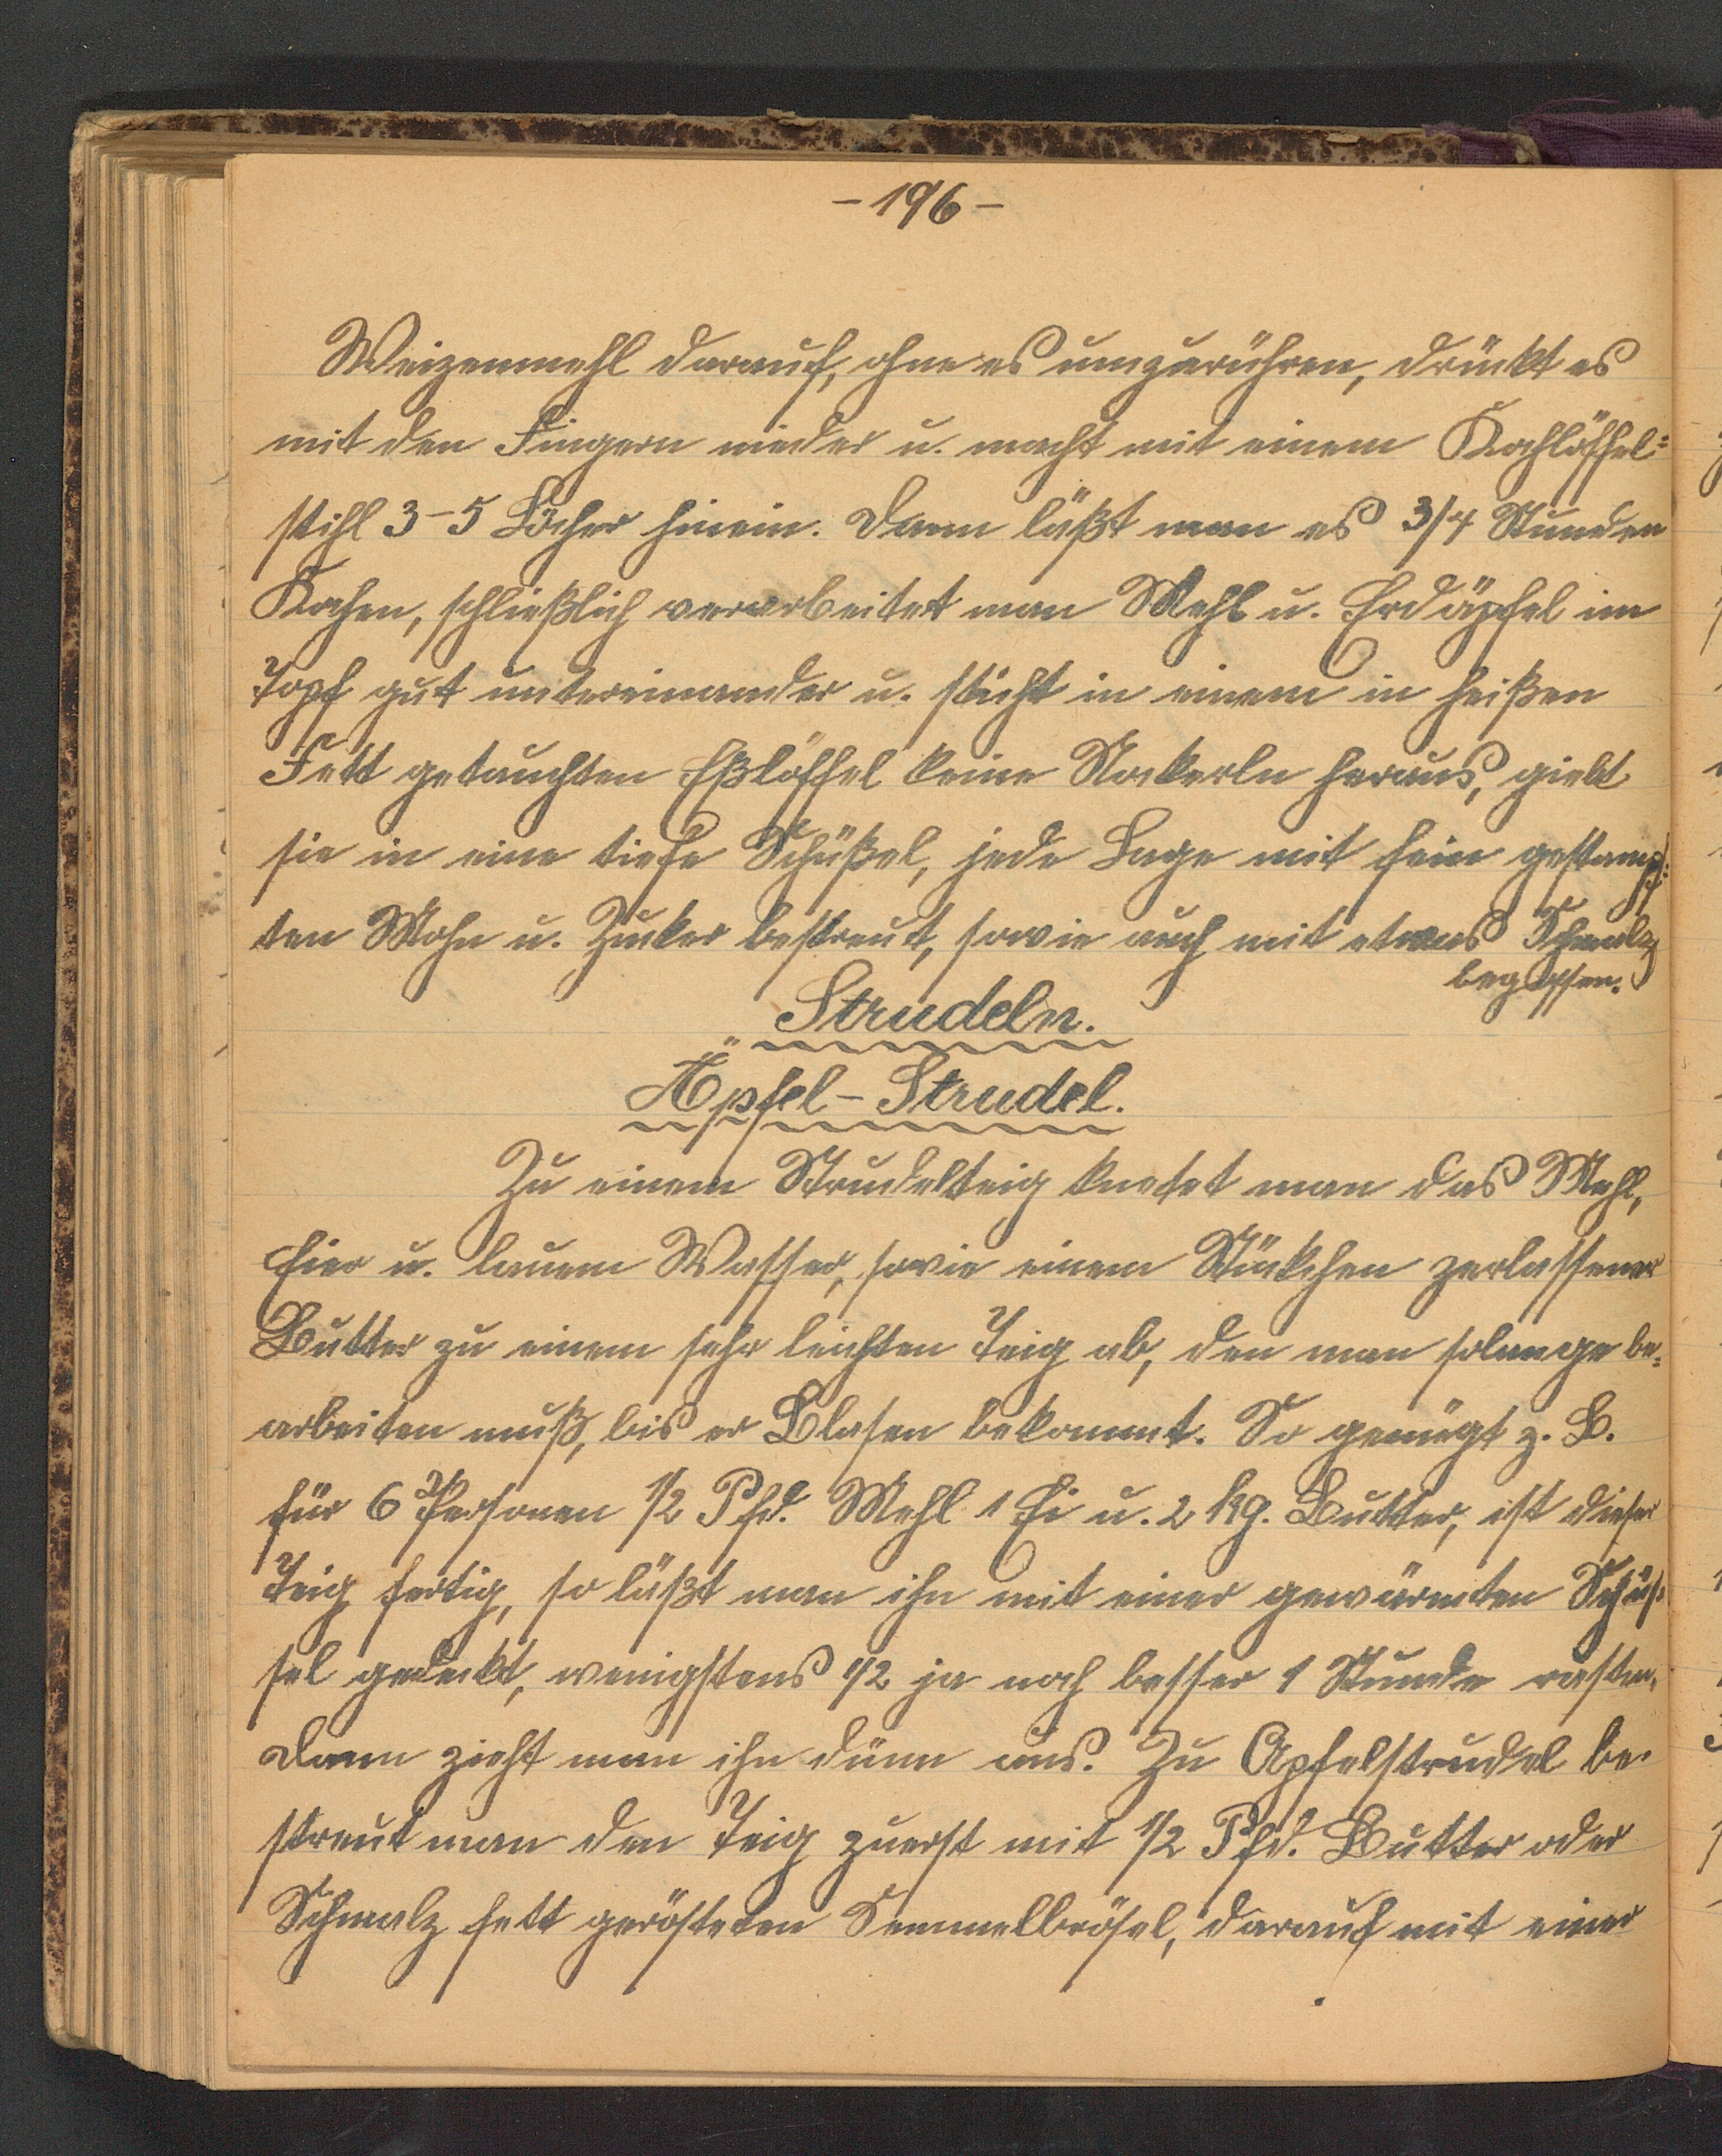 - 196 -
Weizenmehl darauf, ohne es umzurühren, drückt es
mit den Fingern nieder u. macht mit einem Kochlöffel=
stihl 3-5 Löcher hinein. Dann läßt man es 3/4 Stunden
Kochen, schließlich verarbeitet man Mehl u. Erdäpfel im
Topf gut untereinander u. sticht in einem in heißen
Fett getauchten Eßlöffel kleine Nockerln heraus, giebt
sie in eine tiefe Schüßel, jede Lage mit fein gestampf=
ten Mohn u. Zucker bestreut, sowie auch mit etwas Schmalz
begossen.
Strudeln.
Äpfel-Strudel.
Zu einem Strudelteig knetet man das Mehl,
Eier u. lauem Wasser, sowie einem Stückchen zerlassener
Butter zu einem sehr leichten Teig ab, den man solange be=
arbeiten muß, bis er Blasen bekommt. So genügt z. B.
für 6 Personen 1/2 Pfd. Mehl 1 Ei u. 2 kg. Butter, ist dieser
Teig fertig, so läßt man ihn mit einer gewärmten Schüs=
sel gedeckt, wenigstens 1/2 ja noch besser 1 Stunde rasten.
Dann zieht man ihn dünn aus. Zu Apfelstrudel be=
streut man den Teig zuerst mit 1/2 Pfd. Butter oder
Schmalz fett gerösteten Semmelbrösel, darauf mit einer